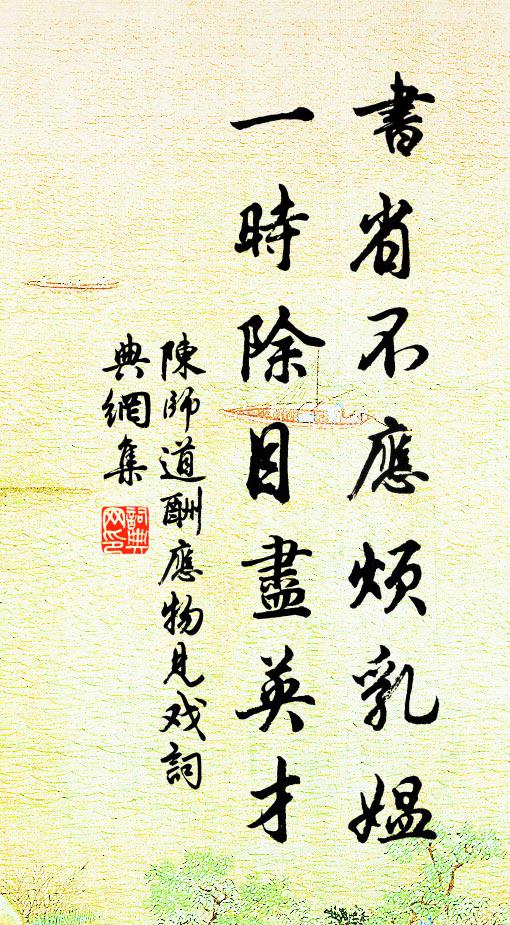 書省不應煩乳媪
一時除目盡英才
陳師道酬應物見戏詞
典網集
詞典
网印